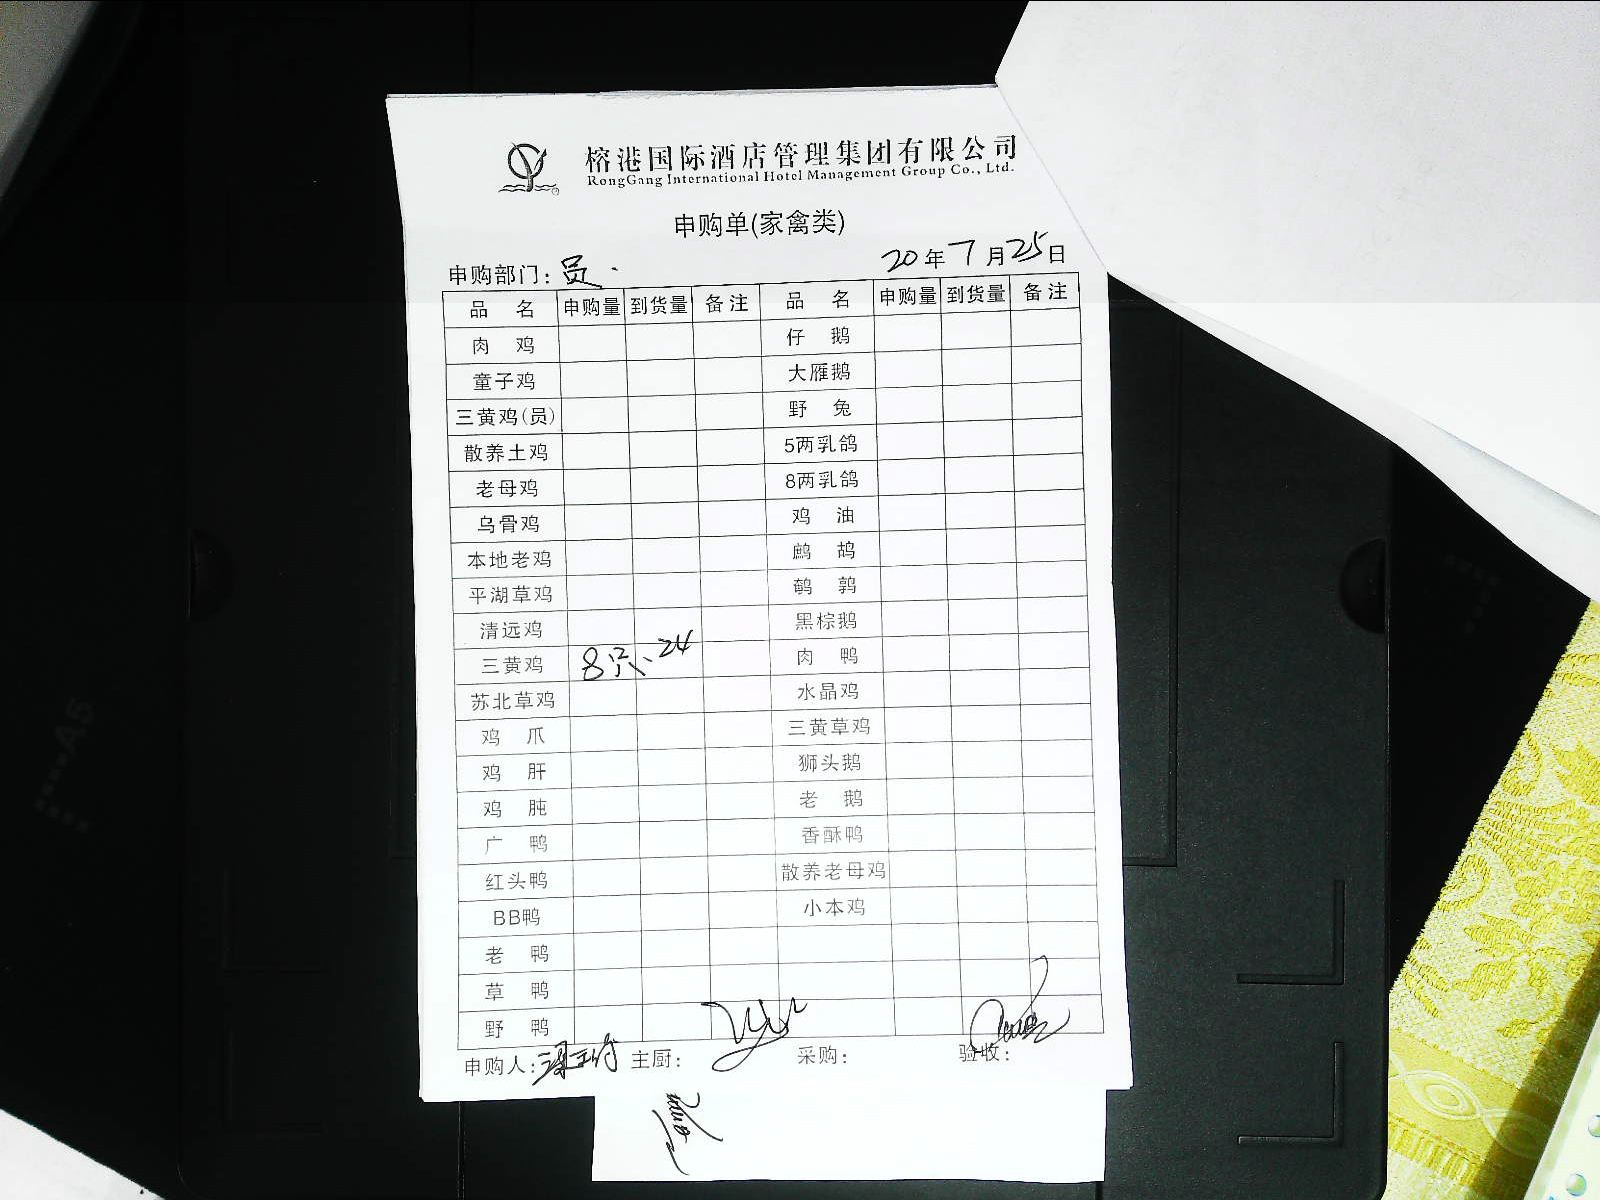 榕港国际酒店管理集团有限公司
RongGang International Hotel Management Group Co., Ltd.
申购单(家禽类)
申购部门: 员.
20年7月25日
品 名 申购量 到货量 备注 品 名 申购量 到货量 备注
肉 鸡 仔 鹅
童子鸡 大雁鹅
三黄鸡(员) 野 兔
散养土鸡 5两乳鸽
老母鸡 8两乳鸽
乌骨鸡 鸡 油
本地老鸡 鹧 鸪
平湖草鸡 鹌 鹑
清远鸡 黑棕鹅
三黄鸡 8只 24 肉 鸭
苏北草鸡 水晶鸡
鸡 爪 三黄草鸡
鸡 肝 狮头鹅
鸡 肫 老 鹅
广 鸭 香酥鸭
红头鸭 散养老母鸡
BB鸭 小本鸡
老 鸭
草 鸭
野 鸭
申购人: 主厨: 采购: 验收:
A5